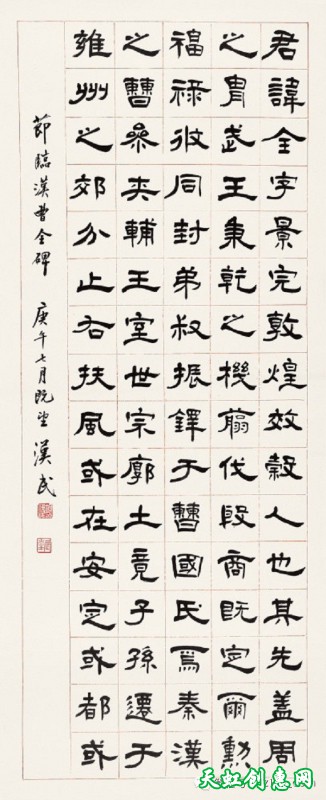 君諱全字景完敦煌效穀人也其先蓋周
之胄武王秉乾之機翦伐殷商既定爾勳
福祿攸同封弟叔振鐸于曹國氏焉秦漢
之曹參夾輔王室世宗廓土竟子孫遷于
雍州之郊分止右扶風或在安定或都或
節臨漢曹全碑 庚午七月既望 漢民
天虹创意网